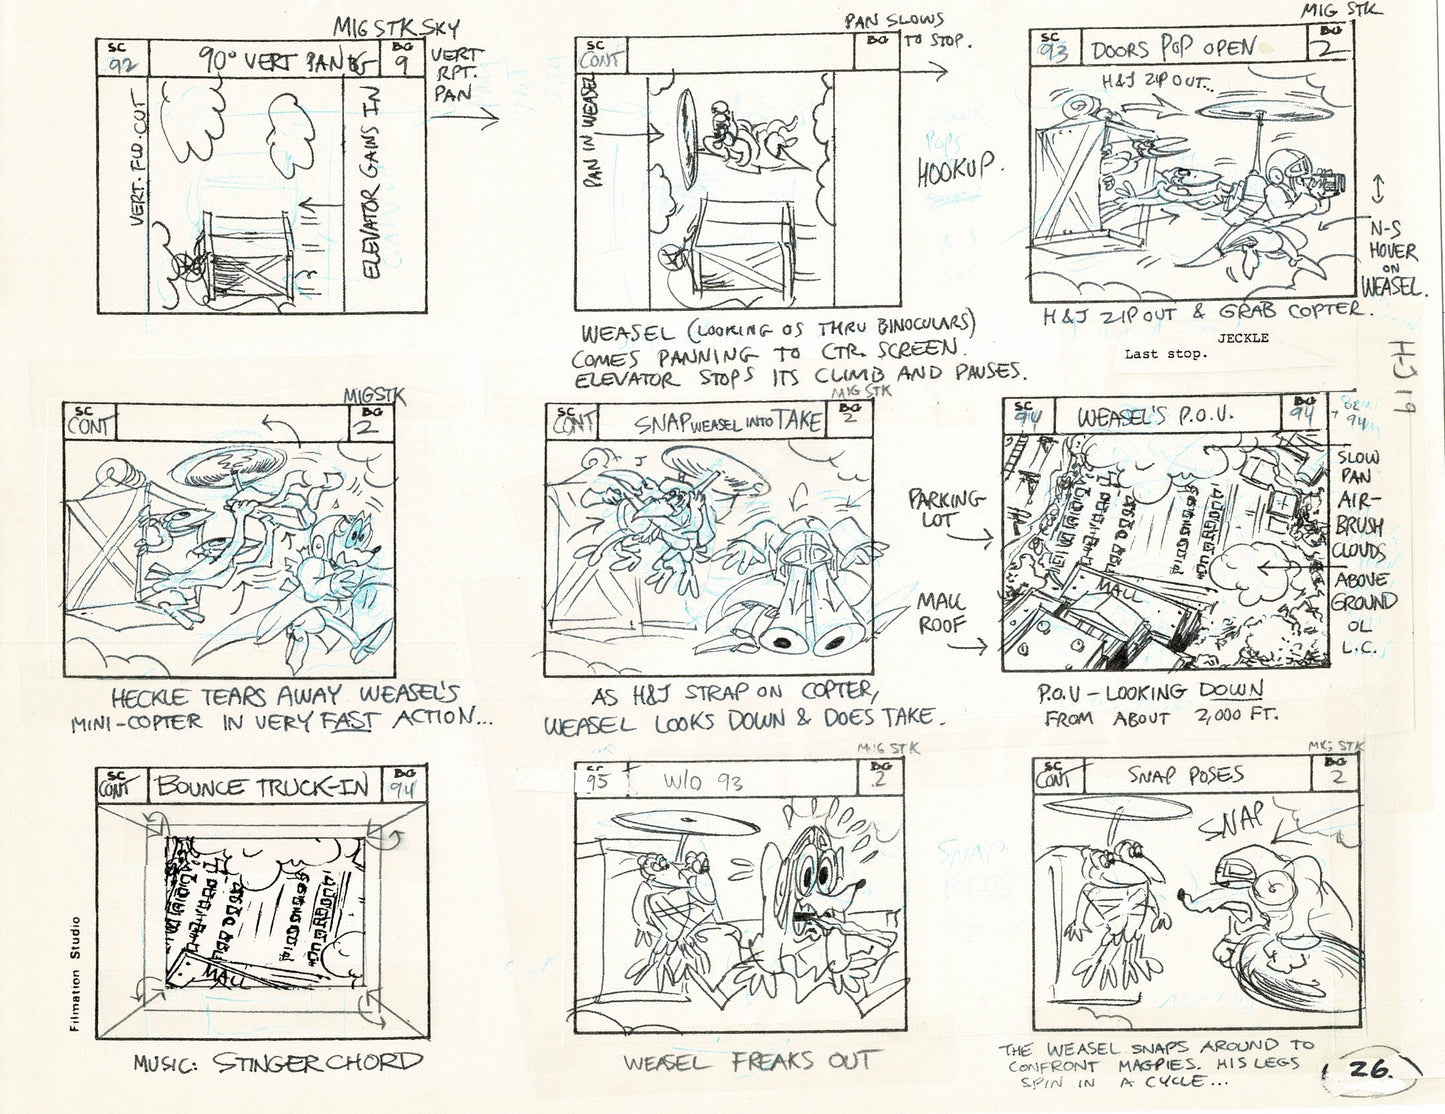 MIG STK SKY
SC
92
90° VERT PAN
BG
9
VERT
RPT.
PAN
VERT. FLD. CUT
ELEVATOR GAINS IN
PAN SLOWS
TO STOP.
SC
CONT
BG
PAN IN WEASEL
HOOKUP.
WEASEL (LOOKING OS THRU BINOCULARS)
COMES PANNING TO CTR. SCREEN.
ELEVATOR STOPS ITS CLIMB AND PAUSES.
MIG STK
SC
93
DOORS POP OPEN
BG
2
H&J ZIP OUT...
N-S
HOVER
ON
WEASEL.
H&J ZIP OUT & GRAB COPTER.
JECKLE
Last stop.
H-J 19
MIG STK
SC
CONT
BG
2
HECKLE TEARS AWAY WEASEL'S
MINI-COPTER IN VERY FAST ACTION...
MIG STK
SC
CONT
SNAP WEASEL INTO TAKE
BG
2
AS H&J STRAP ON COPTER,
WEASEL LOOKS DOWN & DOES TAKE.
SC
94
WEASEL'S P.O.V.
BG
94
PARKING
LOT
MALL
ROOF
MALL
SLOW
PAN
AIR-
BRUSH
CLOUDS
ABOVE
GROUND
OL
L.C.
P.O.V - LOOKING DOWN
FROM ABOUT 2,000 FT.
SC
CONT
BOUNCE TRUCK-IN
BG
94
MALL
MUSIC: STINGER CHORD
Filmation Studio
MIG STK
SC
95
W/O 93
BG
2
WEASEL FREAKS OUT
MIG STK
SC
CONT
SNAP POSES
BG
2
SNAP
THE WEASEL SNAPS AROUND TO
CONFRONT MAGPIES. HIS LEGS
SPIN IN A CYCLE...
26.